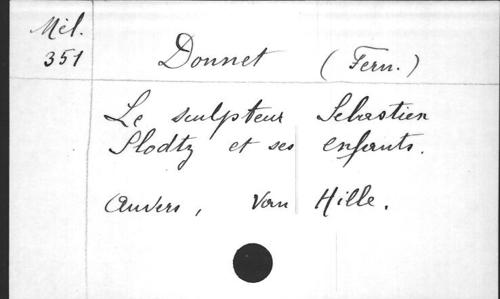 Mél.
351
Donnet (Fern.)
Le sculpteur Sebastien
Slodtz et ses enfants.
Anvers, Van Hille.